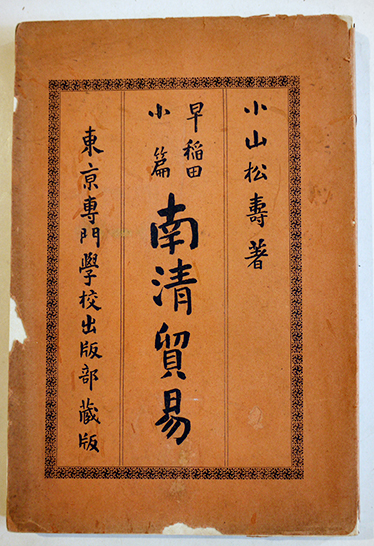 小山松壽著
早稲田
小篇
南清貿易
東京專門學校出版部藏版